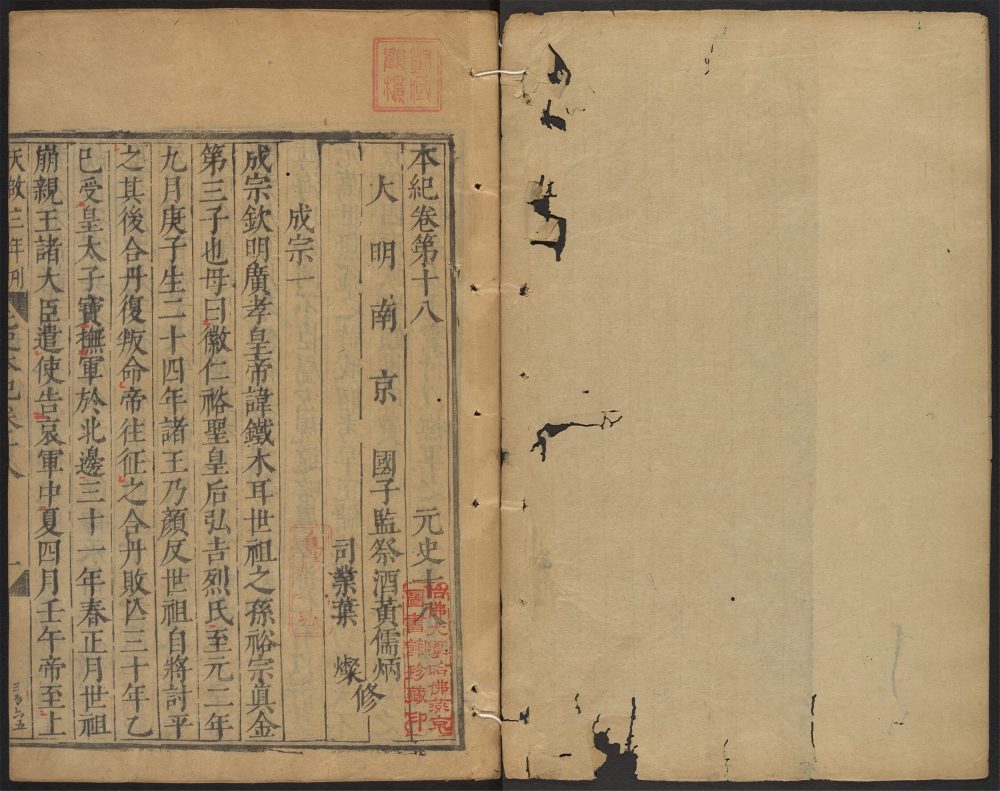 本紀卷第十八 元史十八
大明南京國子監祭酒黃儒炳
司業葉燦修
成宗一
成宗欽明廣孝皇帝諱鐵木耳世祖之孫裕宗真金
第三子也母曰徽仁裕聖皇后弘吉烈氏至元二年
九月庚子生二十四年諸王乃顏反世祖自將討平
之其後合丹復叛命帝往征之合丹敗亾三十年乙
巳受皇太子寶撫軍於北邊三十一年春正月世祖
崩親王諸大臣遣使告哀軍中夏四月壬午帝至上
天啟三年刊
元史本紀卷十八
一
哈佛大學哈佛燕京
圖書館珍藏印